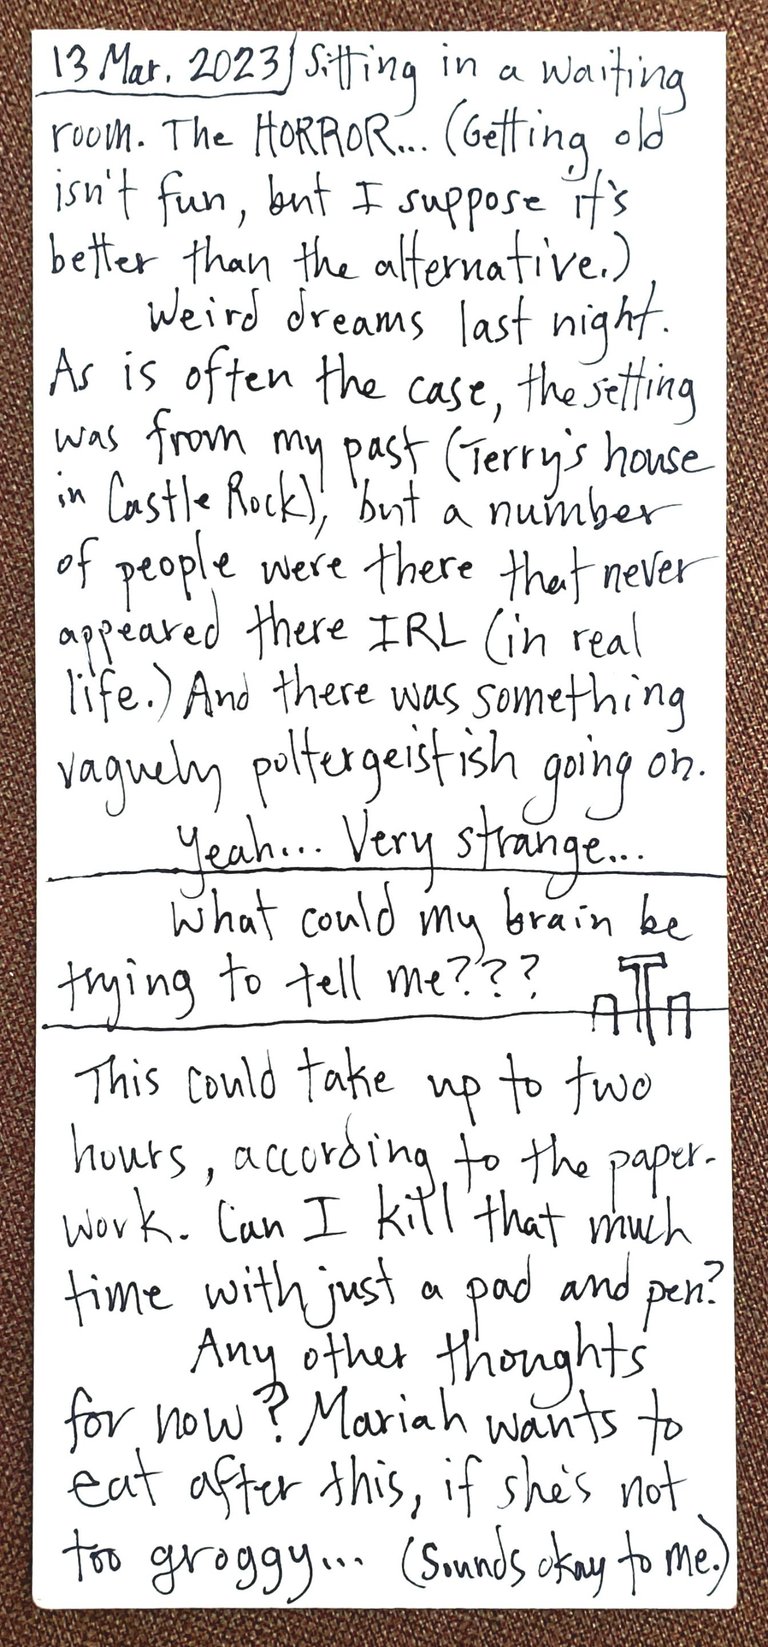 13 Mar. 2023 Sitting in a waiting
room. The HORROR... (Getting old
isn't fun, but I suppose it's
better than the alternative.)
Weird dreams last night.
As is often the case, the setting
was from my past (Terry's house
in Castle Rock), but a number
of people were there that never
appeared there IRL (in real
life.) And there was something
vaguely poltergeistish going on.
Yeah... Very strange...
What could my brain be
trying to tell me???
This could take up to two
hours, according to the paper-
work. Can I kill that much
time with just a pad and pen?
Any other thoughts
for now? Mariah wants to
eat after this, if she's not
too groggy... (Sounds okay to me.)